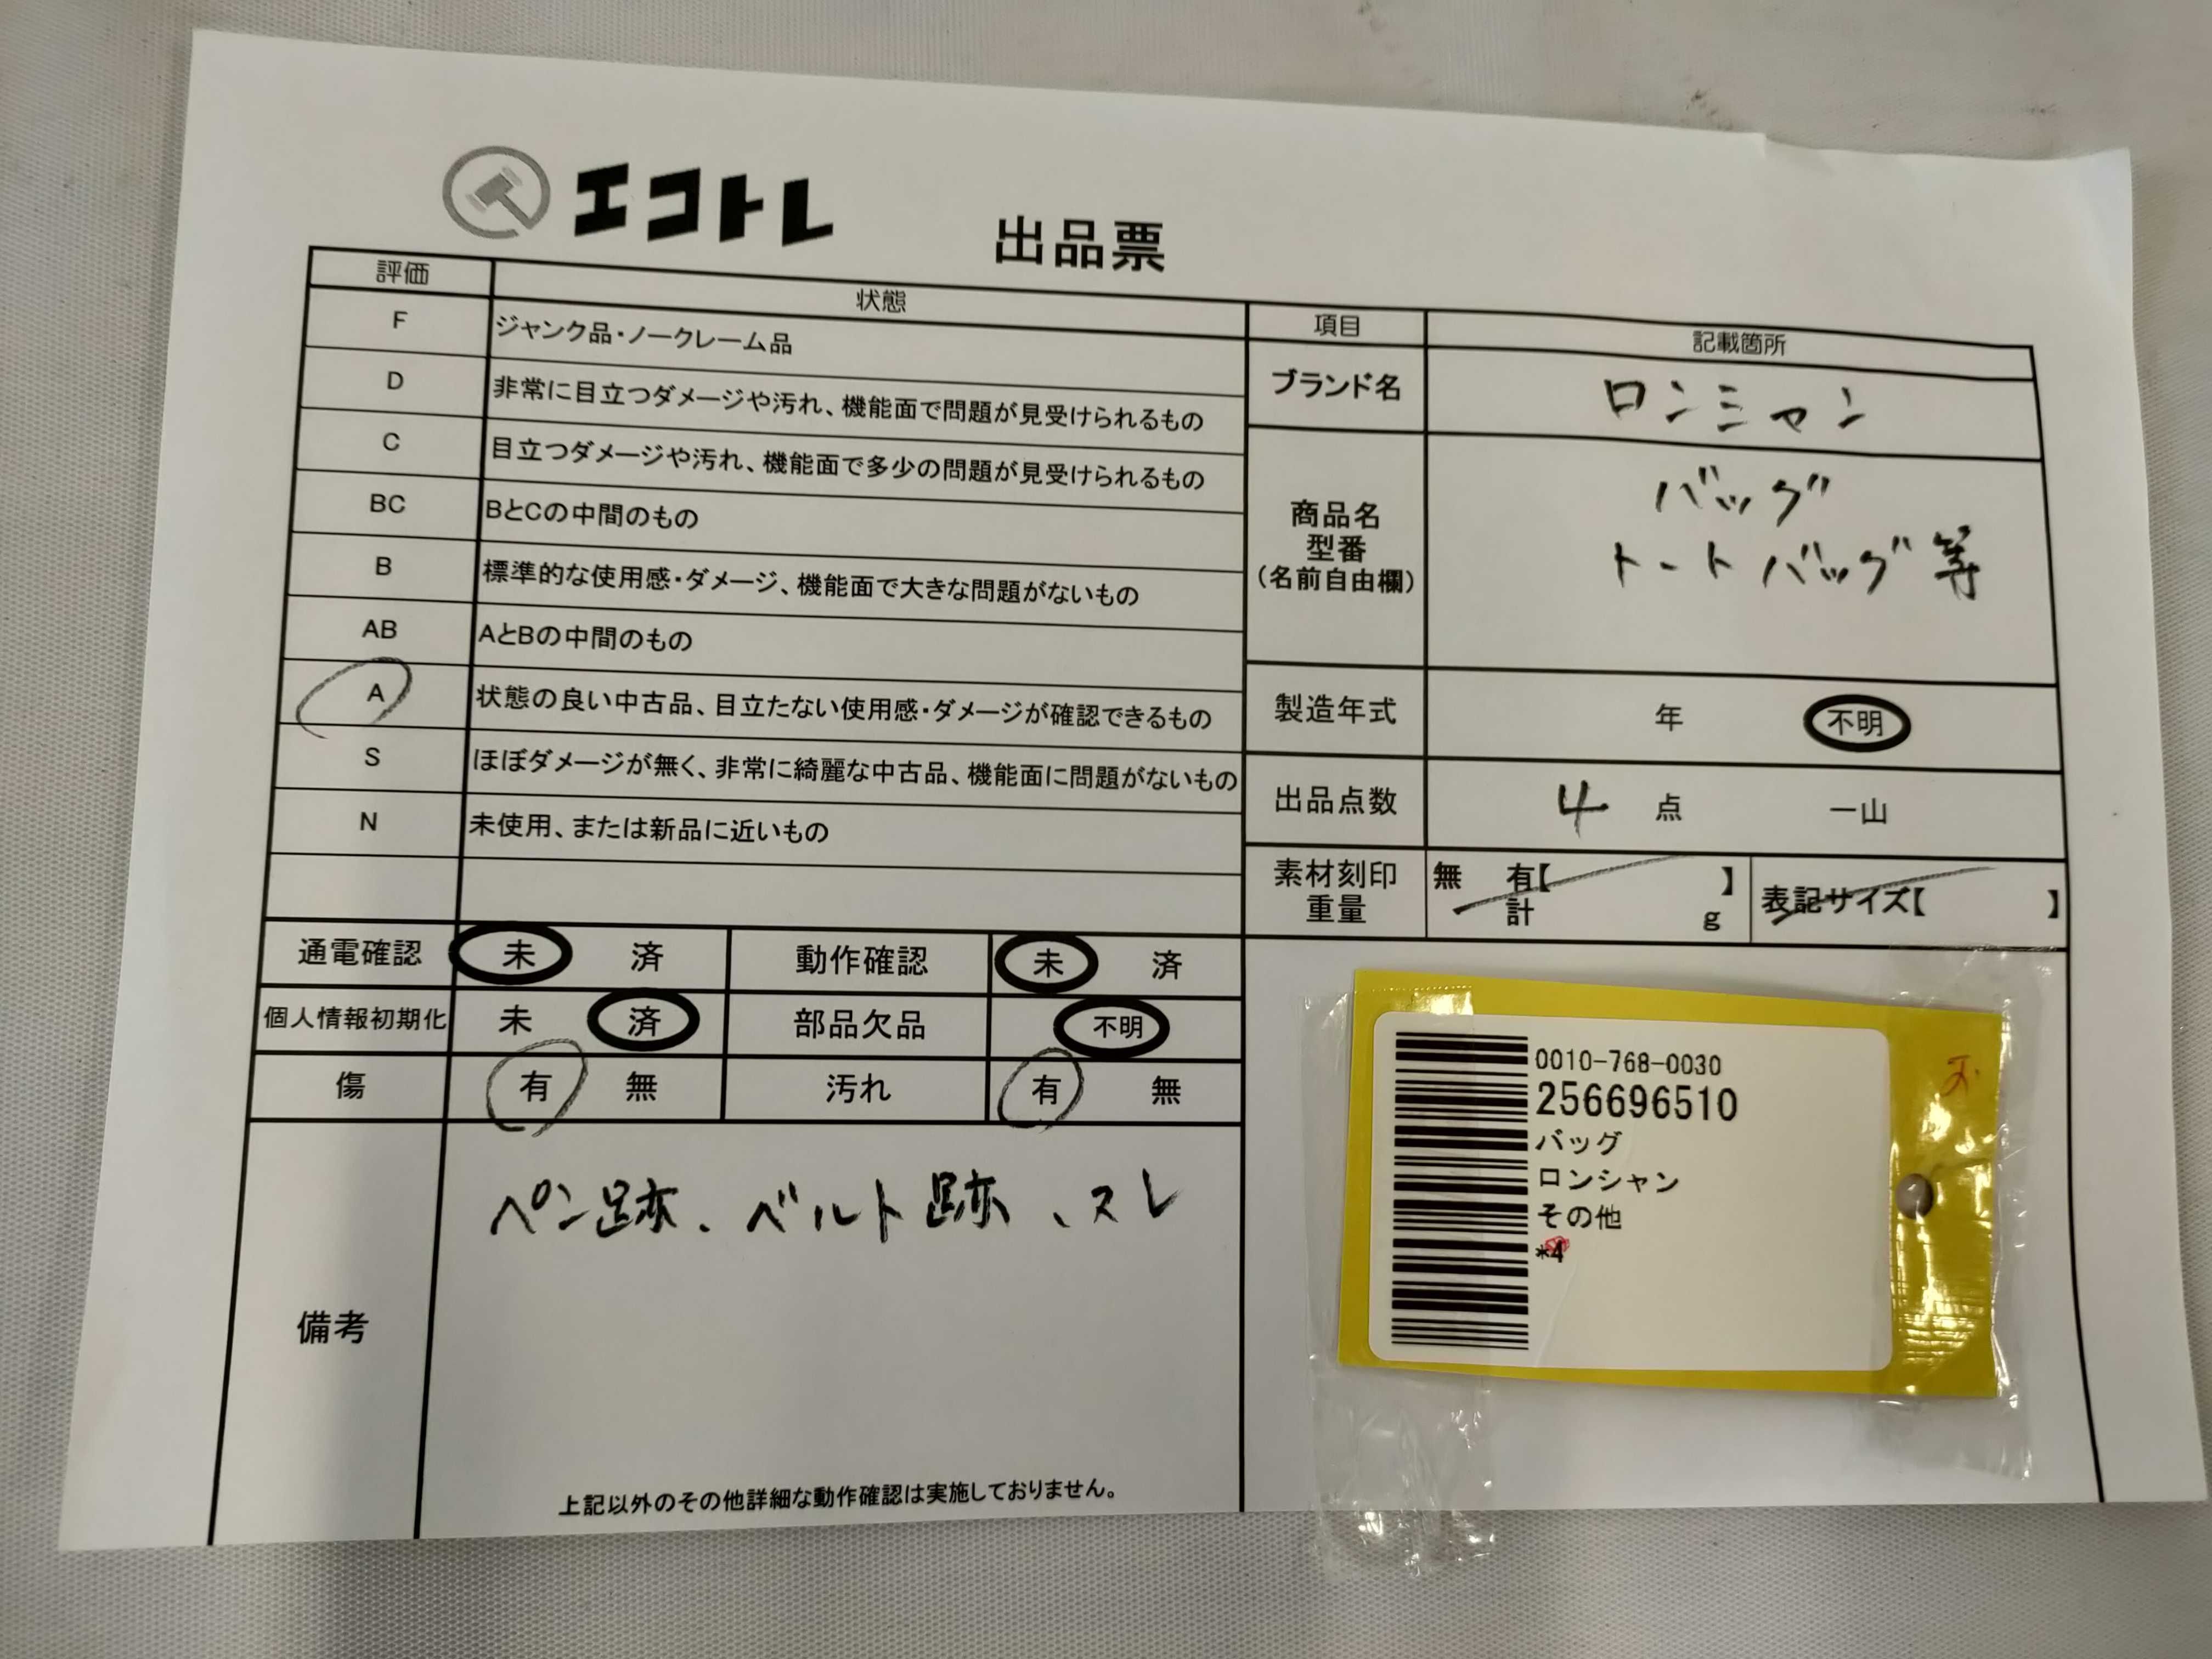 エコトレ
出品票
評価 状態
F ジャンク品・ノークレーム品
D 非常に目立つダメージや汚れ、機能面で問題が見受けられるもの
C 目立つダメージや汚れ、機能面で多少の問題が見受けられるもの
BC BとCの中間のもの
B 標準的な使用感・ダメージ、機能面で大きな問題がないもの
AB AとBの中間のもの
A 状態の良い中古品、目立たない使用感・ダメージが確認できるもの
S ほぼダメージが無く、非常に綺麗な中古品、機能面に問題がないもの
N 未使用、または新品に近いもの
項目 記載箇所
ブランド名 ロンシャン
商品名
型番
(名前自由欄)
バッグ
トートバッグ等
製造年式 年 不明
出品点数 4 点 一山
素材刻印
重量
無 有【 】
計 g
表記サイズ【 】
通電確認 未 済 動作確認 未 済
個人情報初期化 未 済 部品欠品 不明
傷 有 無 汚れ 有 無
備考
ペン跡、ベルト跡、スレ
上記以外のその他詳細な動作確認は実施しておりません。
0010-768-0030
256696510
バッグ
ロンシャン
その他
*4